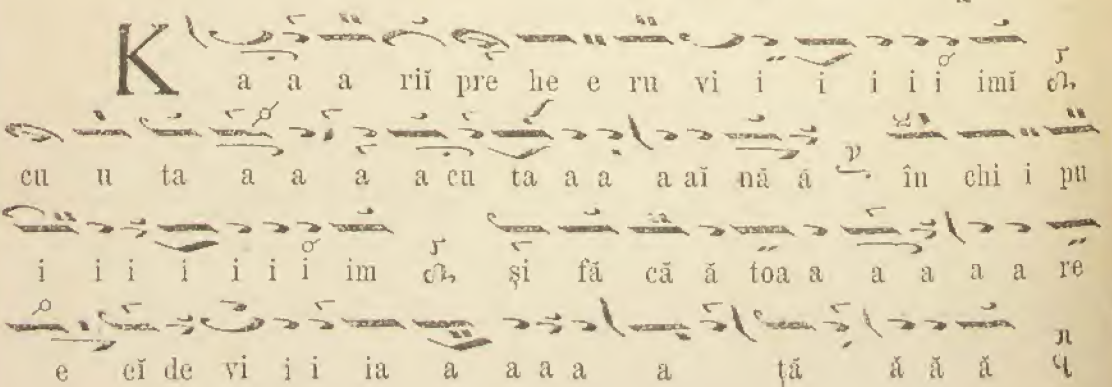 K a a a riĭ pre he e ru vi i i i i i imĭ
cu u ta a a a a cu ta a a a aĭ nă ă în chi i pu
i i i i i i i im și fă că ă toa a a a a a re
e cĭ de vi i i ia a a a a a ță ă ă ă